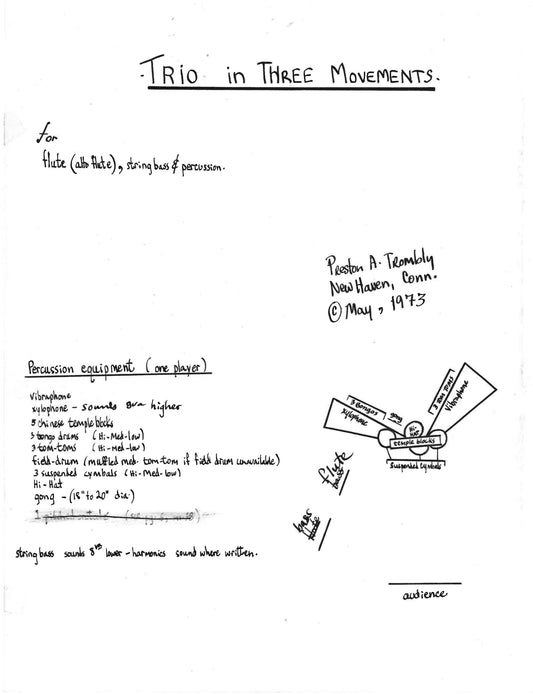 -TRIO in THREE MOVEMENTS.
for
flute (alto flute), string bass & percussion.
Preston A. Trombly
New Haven, Conn.
© May, 1973
Percussion equipment (one player)
vibraphone
xylophone - sounds 8va higher
5 chinese temple blocks
3 bongo drums (Hi-Med-low)
3 tom-toms (Hi-Med-low)
field-drum (muffled med. tomtom if field drum unavailable)
3 suspended cymbals (Hi-Med-low)
Hi-Hat
gong - (18" to 20" dia.)
string bass sounds 8va lower - harmonics sound where written.
3 bongos
xylophone
gong
Hi-Hat
3 tom toms
vibraphone
temple blocks
suspended cymbals
flute
bass
bass
flute
audience